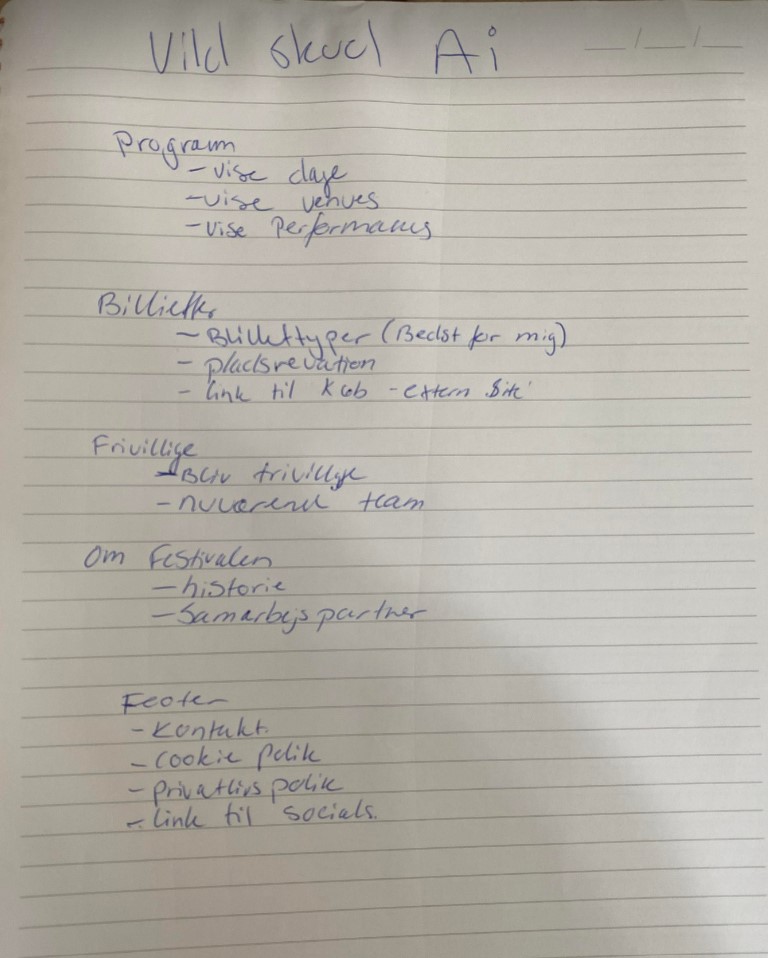 Vild skud Ai
__/__/__
Program
- vise dage
- vise venues
- vise Performances
Billietter
- Billettyper (Bedst for mig)
- pladsrevation
- link til Køb - extern site
Frivillige
- Bliv frivillige
- nuværend team
Om Festivalen
- historie
- Samarbejspartner
Footer
- Kontakt.
- cookie polik
- privatlivs polik
- link til socials.